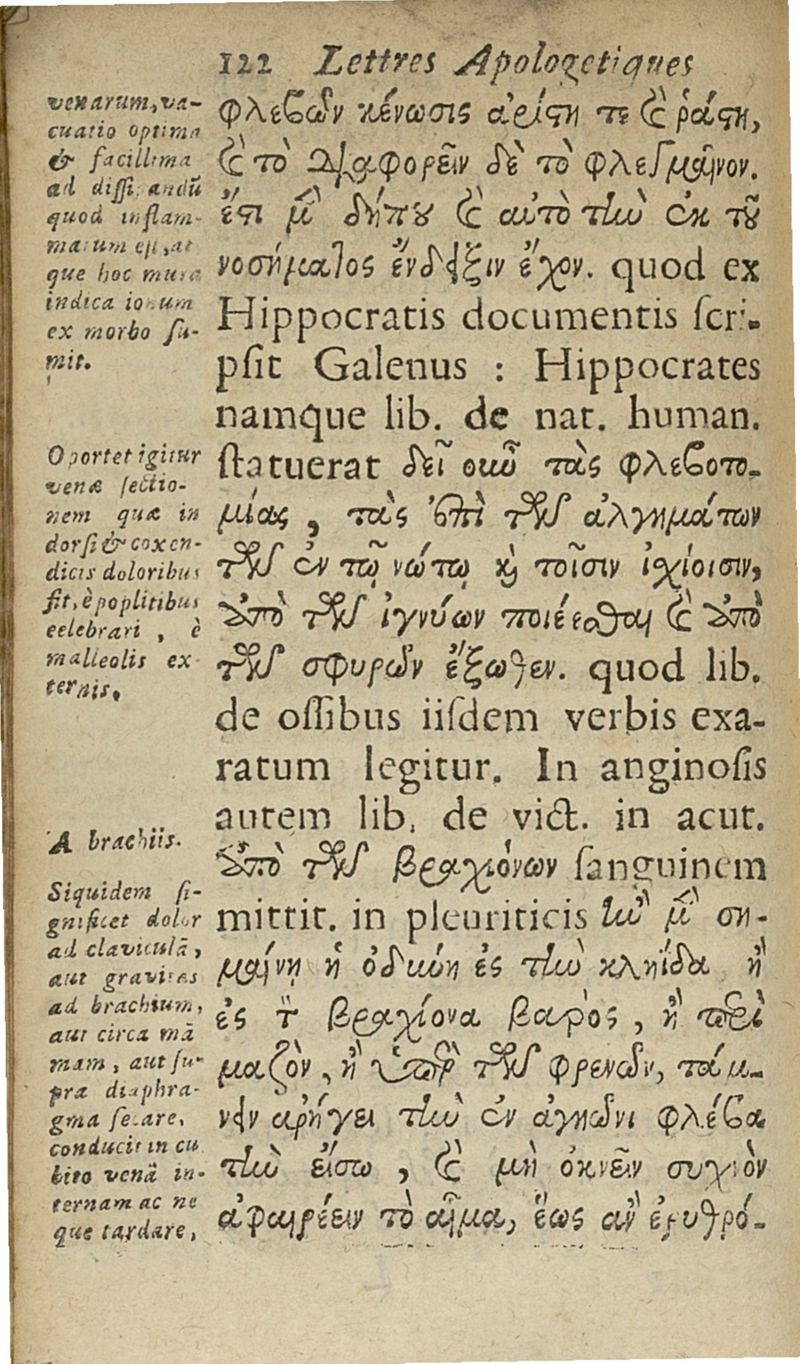 122 Lettres Apologetiques
venarum, va-
cuatio optima
& facillima
ad dissipandũ
quod inflam-
matum est, at
que hoc
indica ionum
ex morbo su-
mit.
Oportet igitur
venæ sectio-
nem quæ in
dorsi & coxen-
dicis doloribus
fit, è poplitibus
celebrari , è
malleolis ex
ternis.
A brachiis.
Siquidem si-
gnificet dolor
ad claviculã,
aut gravitas
ad brachium,
aut circa mã
mam, aut su-
pra diaphra-
gma secare,
conducit in cu
bito venã in-
ternam ac ne
que tardare,
φλεβῶν κένωσις ἀρίστη τε καὶ ῥάστη,
καὶ τὸ διαφορεῖν δὲ τὸ φλεγμαῖνον.
ἔτι μὲν δήπου καὶ αὐτὸ τὴν ἐκ τοῦ
νοσήματος ἔνδειξιν ἔχον. quod ex
Hippocratis documentis ſcri-
pſit Galenus : Hippocrates
namque lib. de nat. human.
ſtatuerat δεῖ οὖν τὰς φλεβοτο-
μίας, τὰς ἐπὶ τῶν ἀλγημάτων
τῶν ἐν τῷ νώτῳ καὶ τοῖσιν ἰχίοισιν,
ἀπὸ τῶν ἰγνύων ποιέεσθαι καὶ ἀπὸ
τῶν σφυρῶν ἔξωθεν. quod lib.
de oſſibus iiſdem verbis exa-
ratum legitur. In anginoſis
autem lib. de vict. in acut.
ἀπὸ τῶν βραχιόνων ſanguinem
mittit. in pleuriticis ἢν μὲν ση-
μαίνῃ ἡ ὀδύνη ἐς τὴν κληῖδα ἢ
ἐς τὸν βραχίονα βαρος, ἢ περὶ
μαζὸν, ἢ ὑπὲρ τῶν φρενῶν, τάμ-
νειν ἀρήγει τὴν ἐν ἀγκῶνι φλέβα
τὴν εἴσω, καὶ μὴ ὀκνεῖν συχνὸν
ἀφαιρέειν τὸ αἷμα, ἕως ἂν ἐρυθρό-